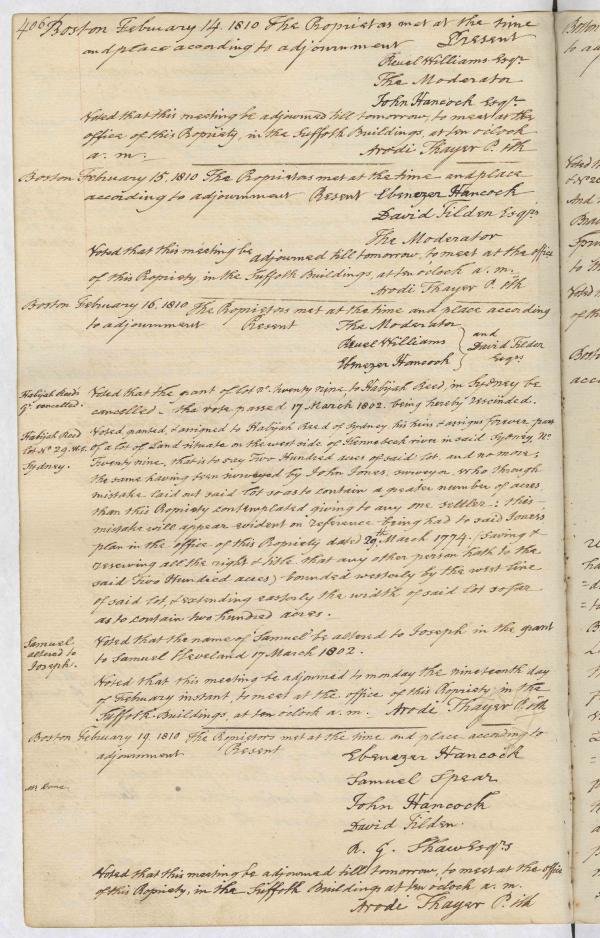 406 Boston February 14. 1810 The Proprietors met at the time
and place according to adjournment Present
Reuel Williams Esqr.
The Moderator
John Hancock Esqr.
Voted that this meeting be adjourned till tomorrow, to meet at the
office of this Propriety, in the Suffolk Buildings, at ten oclock
a. m. Arodi Thayer P. Clk
Boston February 15. 1810 The Proprietors met at the time and place
according to adjournment Present Ebenezer Hancock
David Tilden Esqrs
The Moderator
Voted that this meeting be adjourned till tomorrow, to meet at the office
of this Propriety, in the Suffolk Buildings, at ten oclock a. m.
Arodi Thayer P. Clk
Boston February 16. 1810 The Proprietors met at the time and place according
to adjournment Present The Moderator
Reuel Williams and
Ebenezer Hancock David Tilden
Esqrs
Habijah Reed's Voted that the grant of lot No. twenty nine, to Habijah Reed, in Sydney be
gt. cancelled. cancelled - the vote passed 17 March 1802. being hereby rescinded.
Habijah Reed Voted, granted, & assigned to Habijah Reed of Sydney his heirs & assigns forever, part
lot No 29. W.S. of a lot of Land situate on the west side of Kennebeck river in said Sydney, No.
Sydney. Twenty nine, that is to say Two Hundred acres of said lot, and no more,
the same having been surveyed by John Jones, surveyor, who through
mistake laid out said lot so as to contain a greater number of acres
than this Propriety contemplated giving to any one settler: this
mistake will appear evident on reference being had to said Jones's
plan in the office of this Propriety dated 29th March 1774. (saving &
reserving all the right & title that any other person hath to the
said Two Hundred acres) bounded westerly by the west line
of said lot, & extending easterly the width of said lot so far
as to contain two hundred acres.
Samuel Voted that the name of Samuel be altered to Joseph in the grant
altered to to Samuel Cleveland 17 March 1802.
Joseph.
Voted that this meeting be adjourned to monday the nineteenth day
of February instant, to meet at the office of this Propriety, in the
Suffolk Buildings, at ten oclock a. m. Arodi Thayer P. Clk
Boston February 19. 1810 The Proprietors met at the time and place according to
adjournment Present Ebenezer Hancock
Samuel Spear
John Hancock
David Tilden.
R. G. Shaw Esqrs
Voted that this meeting be adjourned till tomorrow, to meet at the office
of this Propriety, in the Suffolk Buildings, at ten oclock a. m.
Arodi Thayer P. Clk